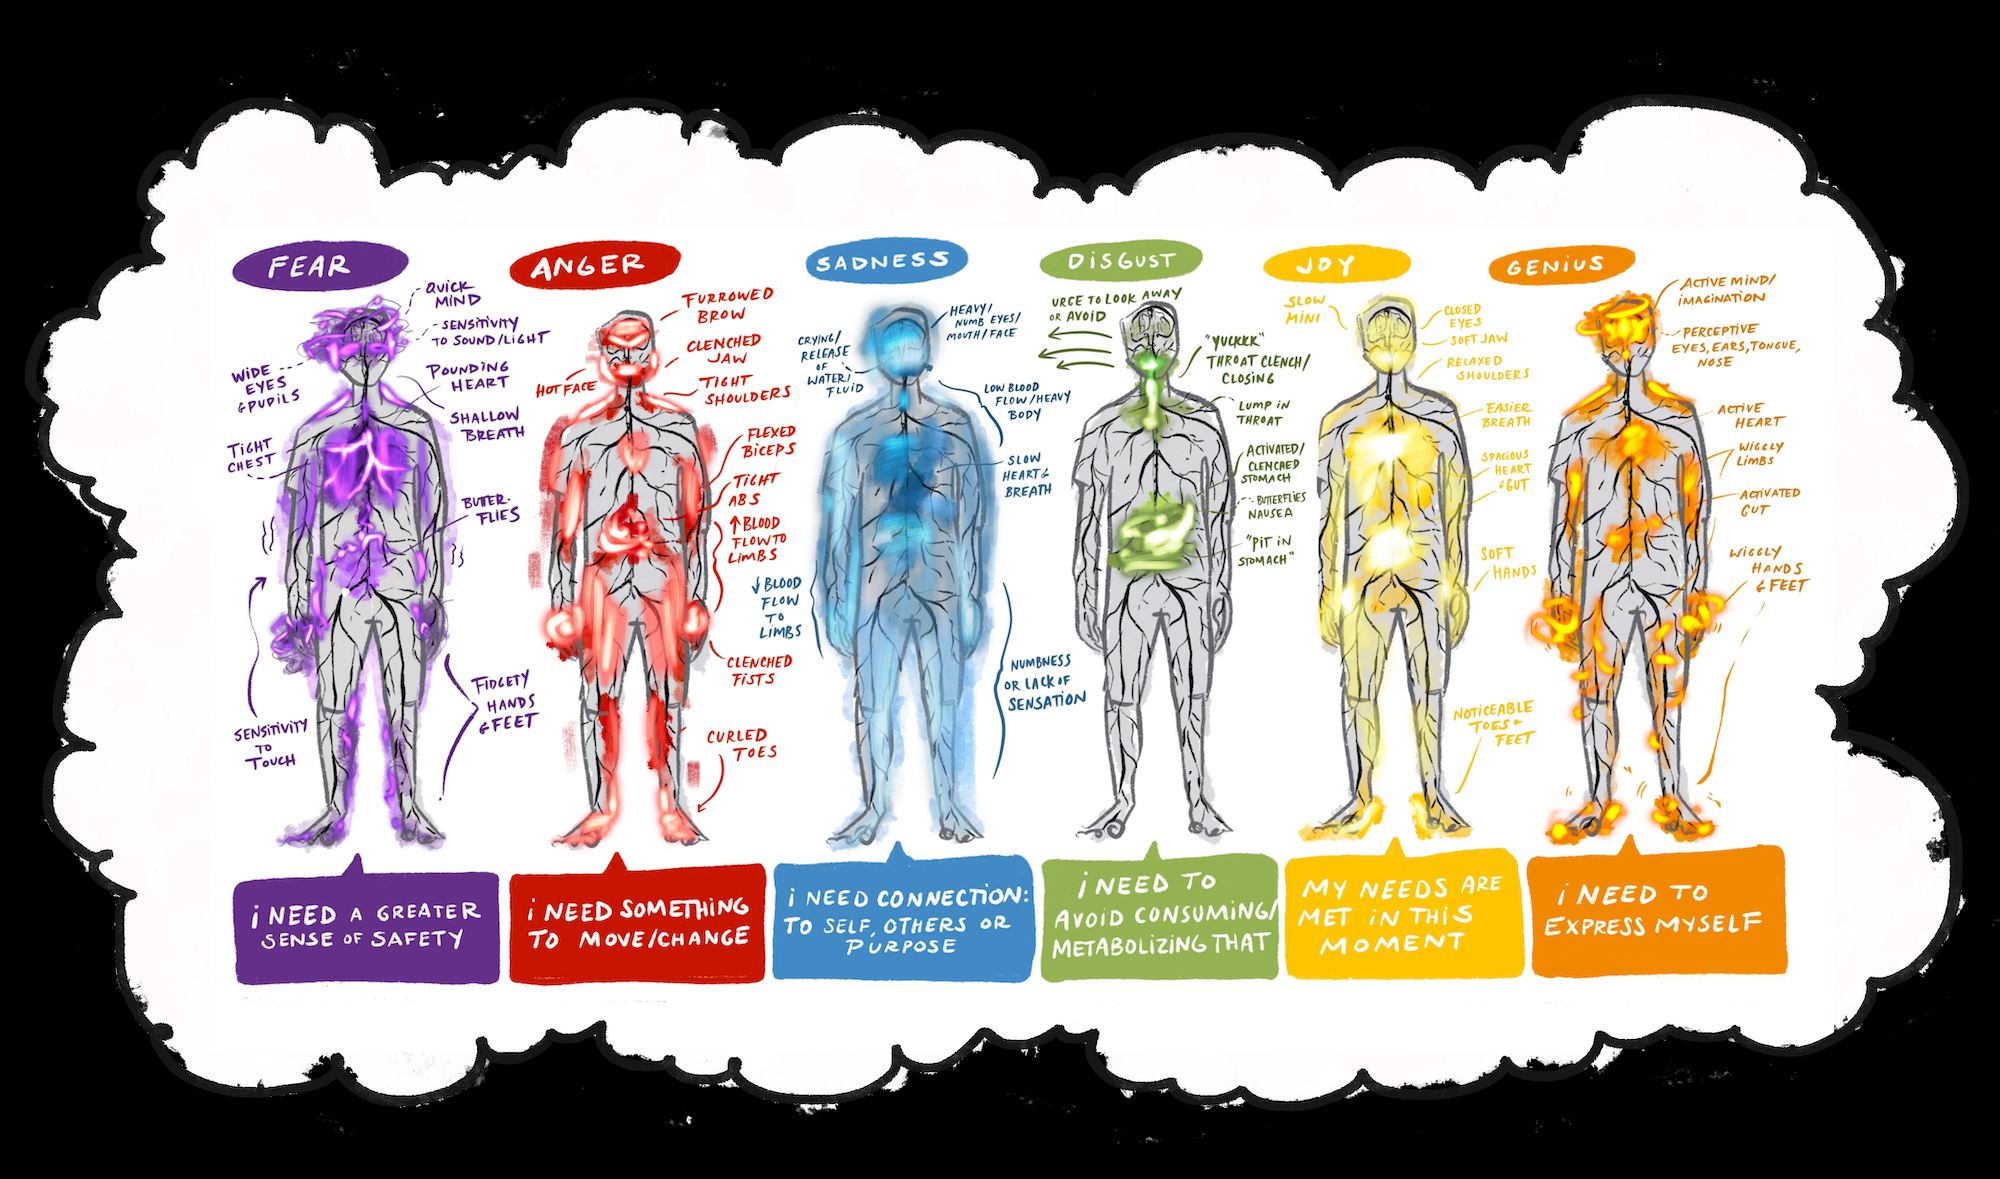 FEAR
QUICK
MIND
SENSITIVITY
TO SOUND/LIGHT
WIDE
EYES
& PUPILS
POUNDING
HEART
SHALLOW
BREATH
TIGHT
CHEST
BUTTER-
FLIES
SENSITIVITY
TO
TOUCH
FIDGETY
HANDS
& FEET
i NEED A GREATER
SENSE OF SAFETY
ANGER
FURROWED
BROW
CLENCHED
JAW
HOT FACE
TIGHT
SHOULDERS
FLEXED
BICEPS
TIGHT
ABS
↑ BLOOD
FLOW TO
LIMBS
CLENCHED
FISTS
CURLED
TOES
i NEED SOMETHING
TO MOVE/CHANGE
SADNESS
HEAVY/
NUMB EYES/
MOUTH/FACE
CRYING/
RELEASE
OF
WATER/
FLUID
LOW BLOOD
FLOW/HEAVY
BODY
SLOW
HEART &
BREATH
↓ BLOOD
FLOW
TO
LIMBS
NUMBNESS
OR LACK OF
SENSATION
i NEED CONNECTION:
TO SELF, OTHERS OR
PURPOSE
DISGUST
URGE TO LOOK AWAY
OR AVOID
"YUCKKK"
THROAT CLENCH/
CLOSING
LUMP IN
THROAT
ACTIVATED/
CLENCHED
STOMACH
BUTTERFLIES
NAUSEA
"PIT IN
STOMACH"
i NEED TO
AVOID CONSUMING/
METABOLIZING THAT
JOY
SLOW
MINI
CLOSED
EYES
SOFT JAW
RELAXED
SHOULDERS
EASIER
BREATH
SPACIOUS
HEART
& GUT
SOFT
HANDS
NOTICEABLE
TOES +
FEET
MY NEEDS ARE
MET IN THIS
MOMENT
GENIUS
ACTIVE MIND/
IMAGINATION
PERCEPTIVE
EYES, EARS, TONGUE,
NOSE
ACTIVE
HEART
WIGGLY
LIMBS
ACTIVATED
GUT
WIGGLY
HANDS
& FEET
i NEED TO
EXPRESS MYSELF